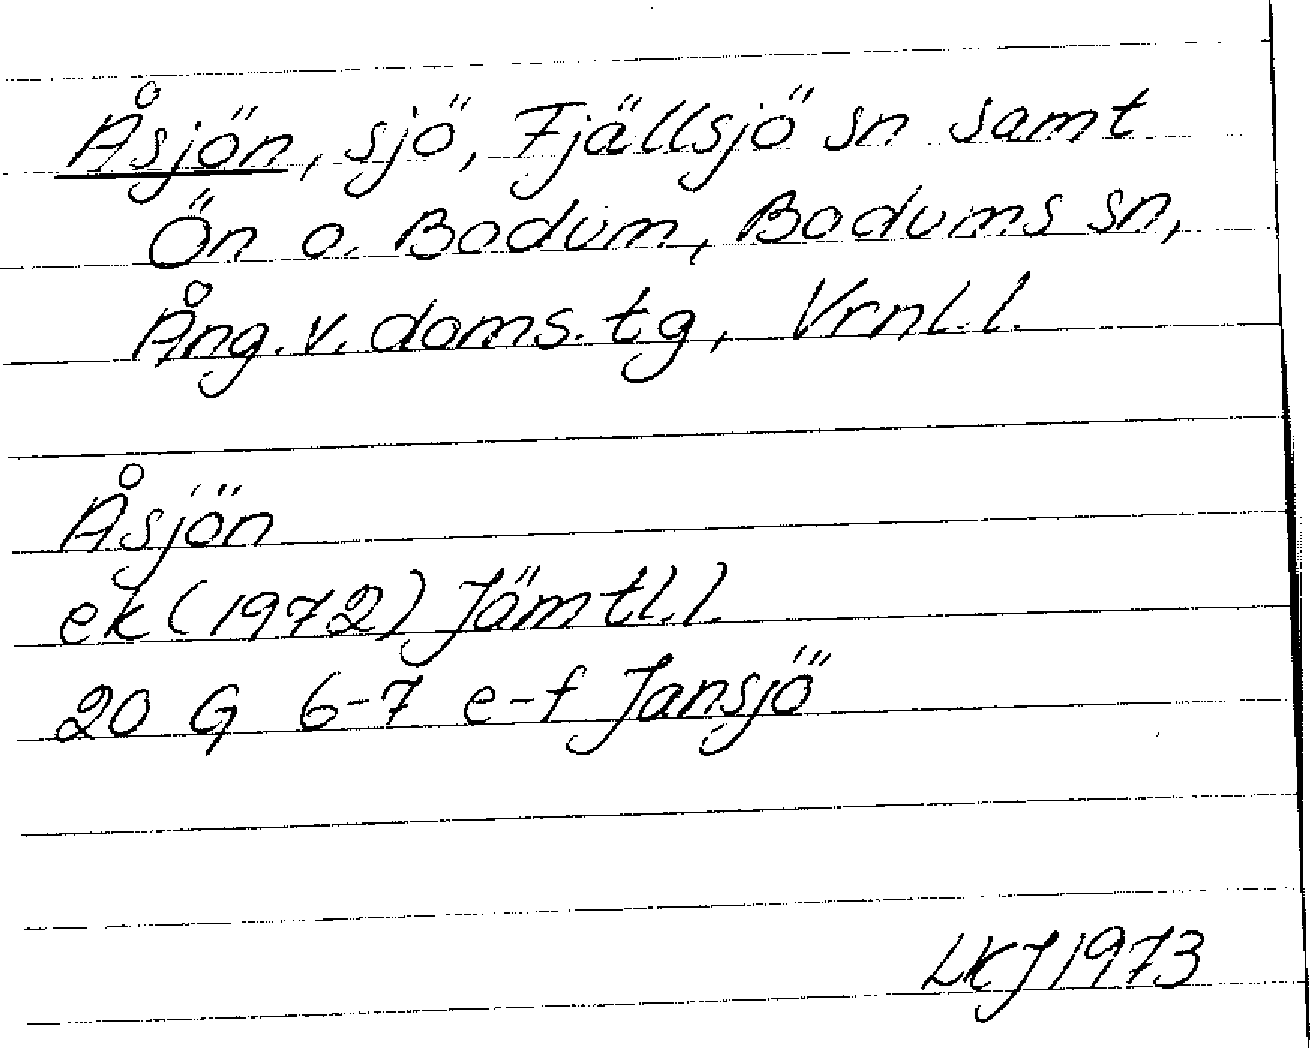 Åsjön, sjö, Fjällsjö sn samt
Ön o. Bodum, Bodums sn,
Ång. v. doms. tg, Vrnl. l.
Åsjön
ek (1972) Jämtl. l.
20 G 6-7 e-f Jansjö
LKJ 1973